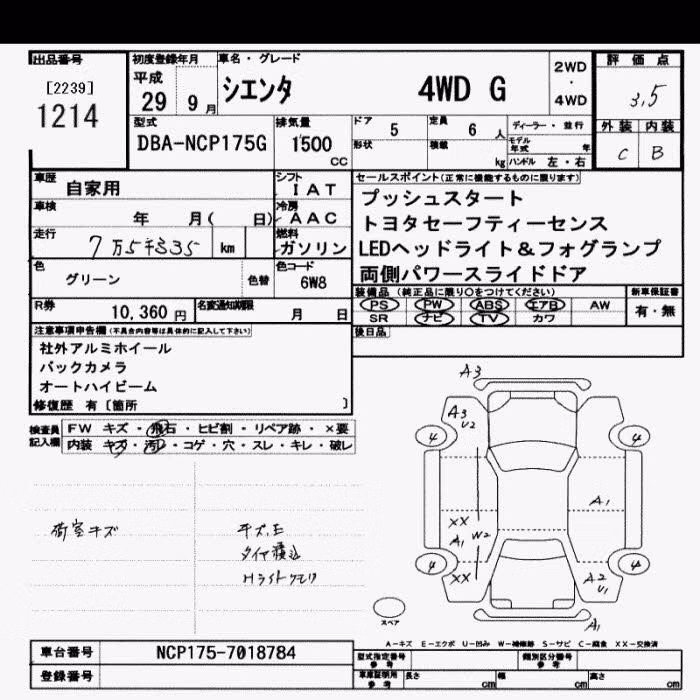 出品番号 初度登録年月 車名・グレード 評価点
[2239] 平成 シエンタ 4WD G 2WD・4WD 3,5
1214 29 9月
型式 排気量 ドア 5 定員 6人 ディーラー・並行 外装 内装
DBA-NCP175G 1500cc 形状 積載 kg モデル年式 年 C B
ハンドル 左・右
車歴 自家用 シフト IAT セールスポイント(正常に機能するものに限ります)
車検 年 月( 日) 冷房 AAC プッシュスタート
トヨタセーフティーセンス
走行 7万5千335 km 燃料 ガソリン LEDヘッドライト&フォグランプ
色 グリーン 色替 色コード 6W8 両側パワースライドドア
装備品(純正品に限り○をつけてください) 新車保証書
R券 10,360円 名変通知期限 月 日 PS PW ABS エアB AW 有・無
SR ナビ TV カワ
注意事項申告欄(不具合内容等は具体的に記入して下さい) 後日品
社外アルミホイール
バックカメラ
オートハイビーム
修復歴 有〔箇所 〕
検査員記入欄 FW キズ・飛石・ヒビ割・リペア跡・×要
内装 キズ・汚レ・コゲ・穴・スレ・キレ・破レ
A3
A3
U2
4 4
A1
XX
A1 W2
XX
4 4
A2
U1
A1
荷室キズ キズ,E
タイヤ積込
Hライトクモリ
スペア
A-キズ E-エクボ U-凹み W-補修跡 S-サビ C-腐食 XX-交換済
車台番号 NCP175-7018784 型式指定番号 参考 類別区分番号 参考
登録番号 車庫証明用 参考 長さ cm 幅 cm 高さ cm